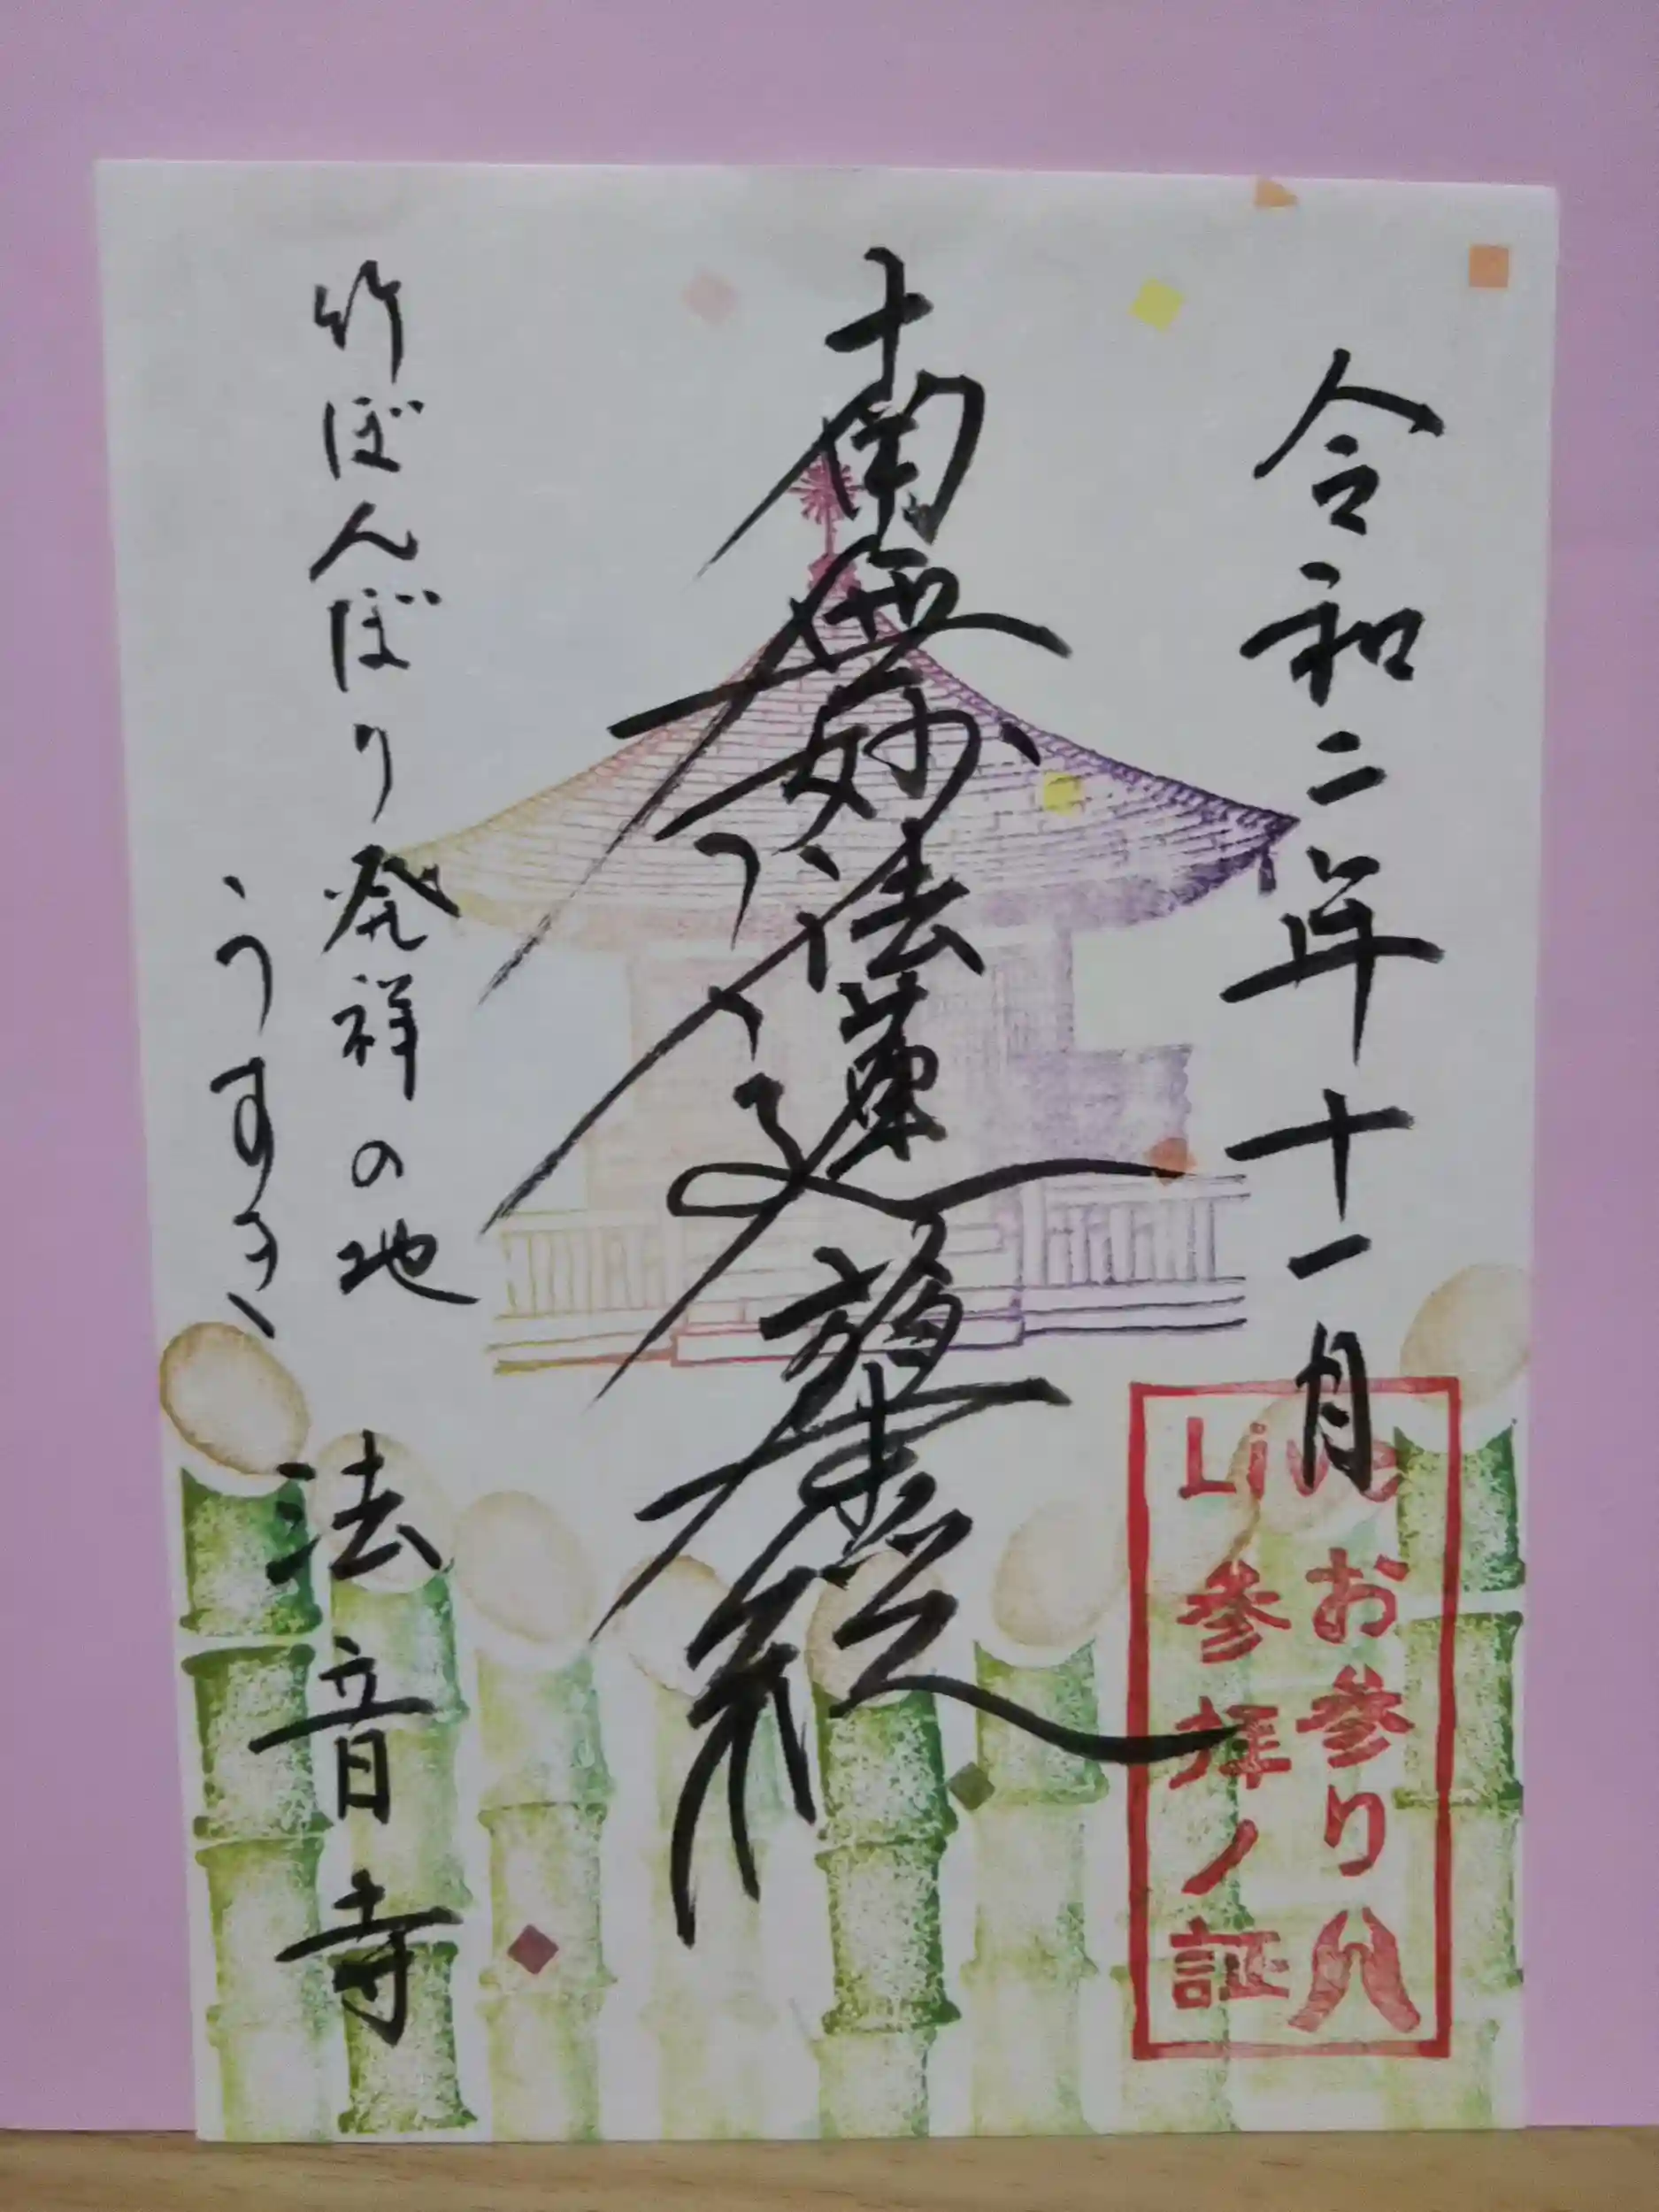 令和二年十一月
Live
お参り
参拝ノ証
南無妙法蓮華経
竹ぼんぼり発祥の地
うすき
法音寺